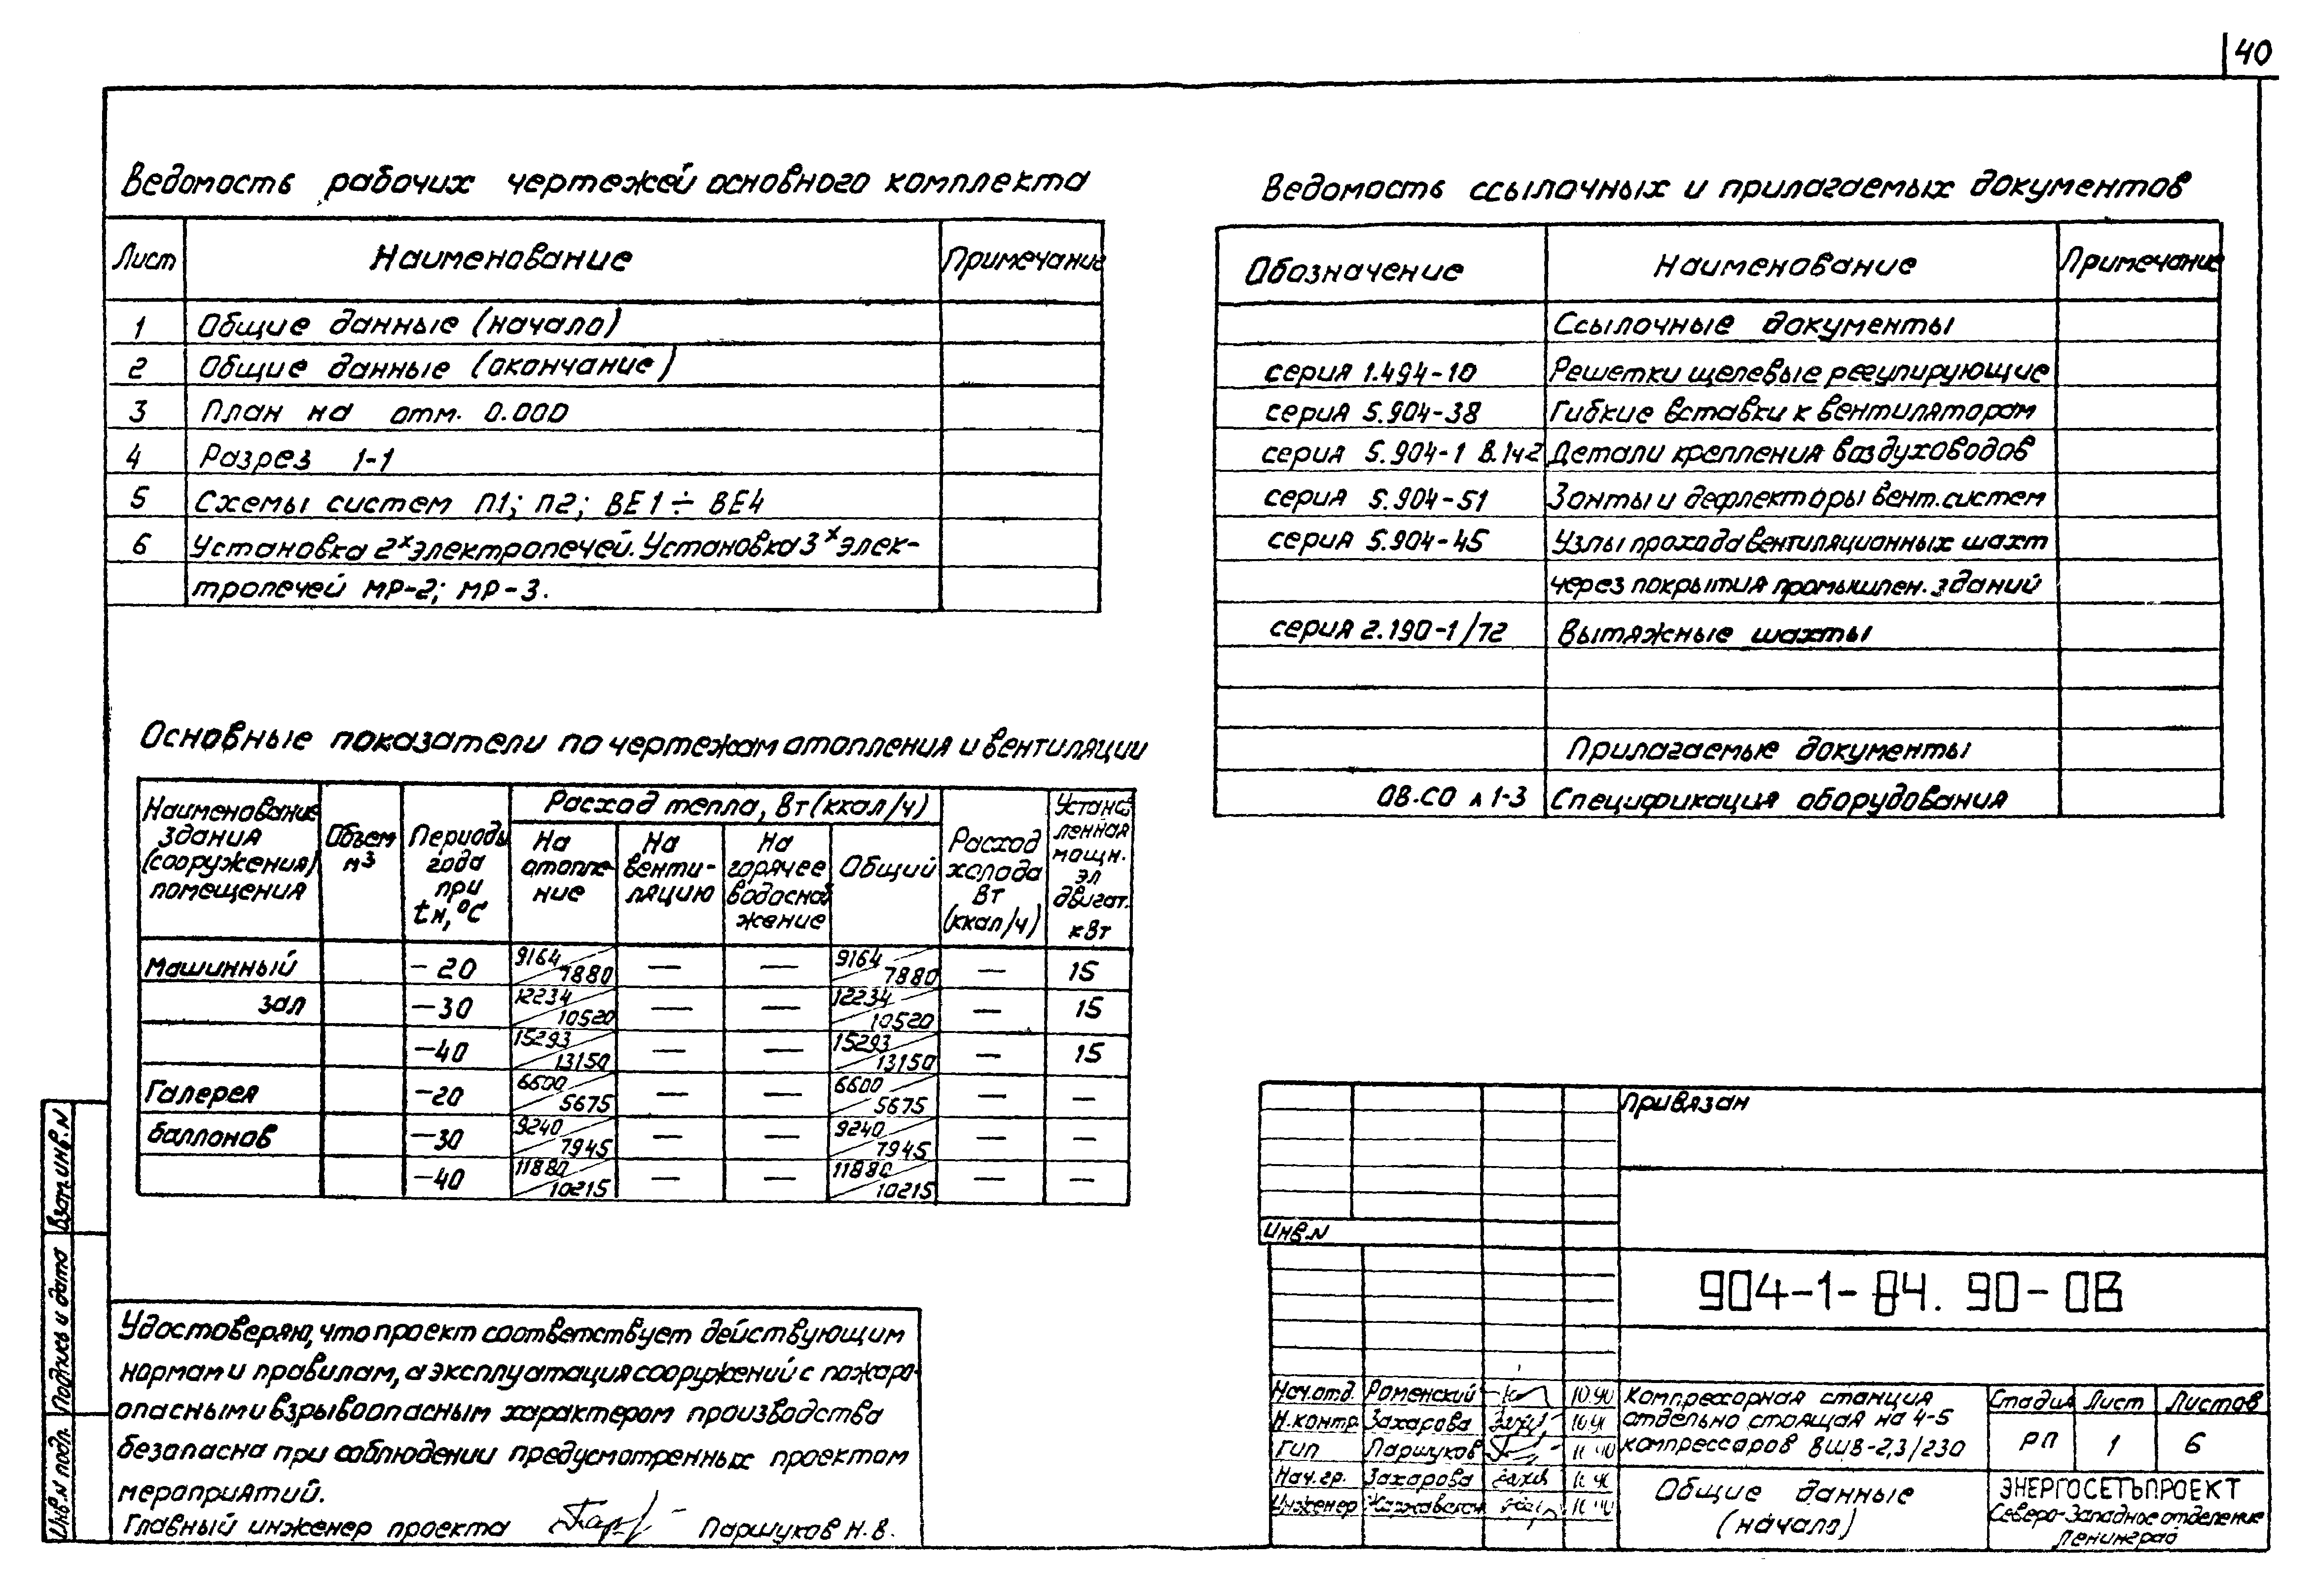 40
Ведомость рабочих чертежей основного комплекта
Лист Наименование Примечание
1 Общие данные (начало)
2 Общие данные (окончание)
3 План на отм. 0.000
4 Разрез 1-1
5 Схемы систем П1; П2; ВЕ1÷ВЕ4
6 Установка 2х электропечей. Установка 3х элек-
тропечей МР-2; МР-3.
Ведомость ссылочных и прилагаемых документов
Обозначение Наименование Примечание
Ссылочные документы
серия 1.494-10 Решетки щелевые регулирующие
серия 5.904-38 Гибкие вставки к вентиляторам
серия 5.904-1 В.1ч2 Детали крепления воздуховодов
серия 5.904-51 Зонты и дефлекторы вент.систем
серия 5.904-45 Узлы прохода вентиляционных шахт
через покрытия промышлен. зданий
серия 2.190-1/72 Вытяжные шахты
Прилагаемые документы
ОВ.СО л 1-3 Спецификация оборудования
Основные показатели по чертежам отопления и вентиляции
Наименование здания (сооружения) помещения
Объем м3
Периоды года при tн,°С
Расход тепла, Вт (ккал/ч)
На отопле-ние
На венти-ляцию
На горячее водосна-жение
Общий
Расход холода Вт (ккал/ч)
Установ-ленная мощн. эл двигат. кВт
Машинный -20 9164/7880 — — 9164/7880 — 15
зал -30 12234/10520 — — 12234/10520 — 15
-40 15293/13150 — — 15293/13150 — 15
Галерея -20 6600/5675 — — 6600/5675 — —
баллонов -30 9240/7945 — — 9240/7945 — —
-40 11880/10215 — — 11880/10215 — —
Удостоверяю, что проект соответствует действующим
нормам и правилам, а эксплуатация сооружений с пожаро-
опасным и взрывоопасным характером производства
безопасна при соблюдении предусмотренных проектом
мероприятий.
Главный инженер проекта Паршуков Н.В.
Взам.инв.N
Подпись и дата
Инв.N подл.
Привязан
Инв.N
904-1-84.90-ОВ
Нач.отд. Роменский 10.90
Н.контр. Захарова 10.90
ГИП Паршуков
Нач.гр. Захарова
Инженер
Компрессорная станция
отдельно стоящая на 4-5
компрессоров ВШВ-2,3/230
Стадия Лист Листов
РП 1 6
Общие данные
(начало)
ЭНЕРГОСЕТЬПРОЕКТ
Северо-Западное отделение
Ленинград